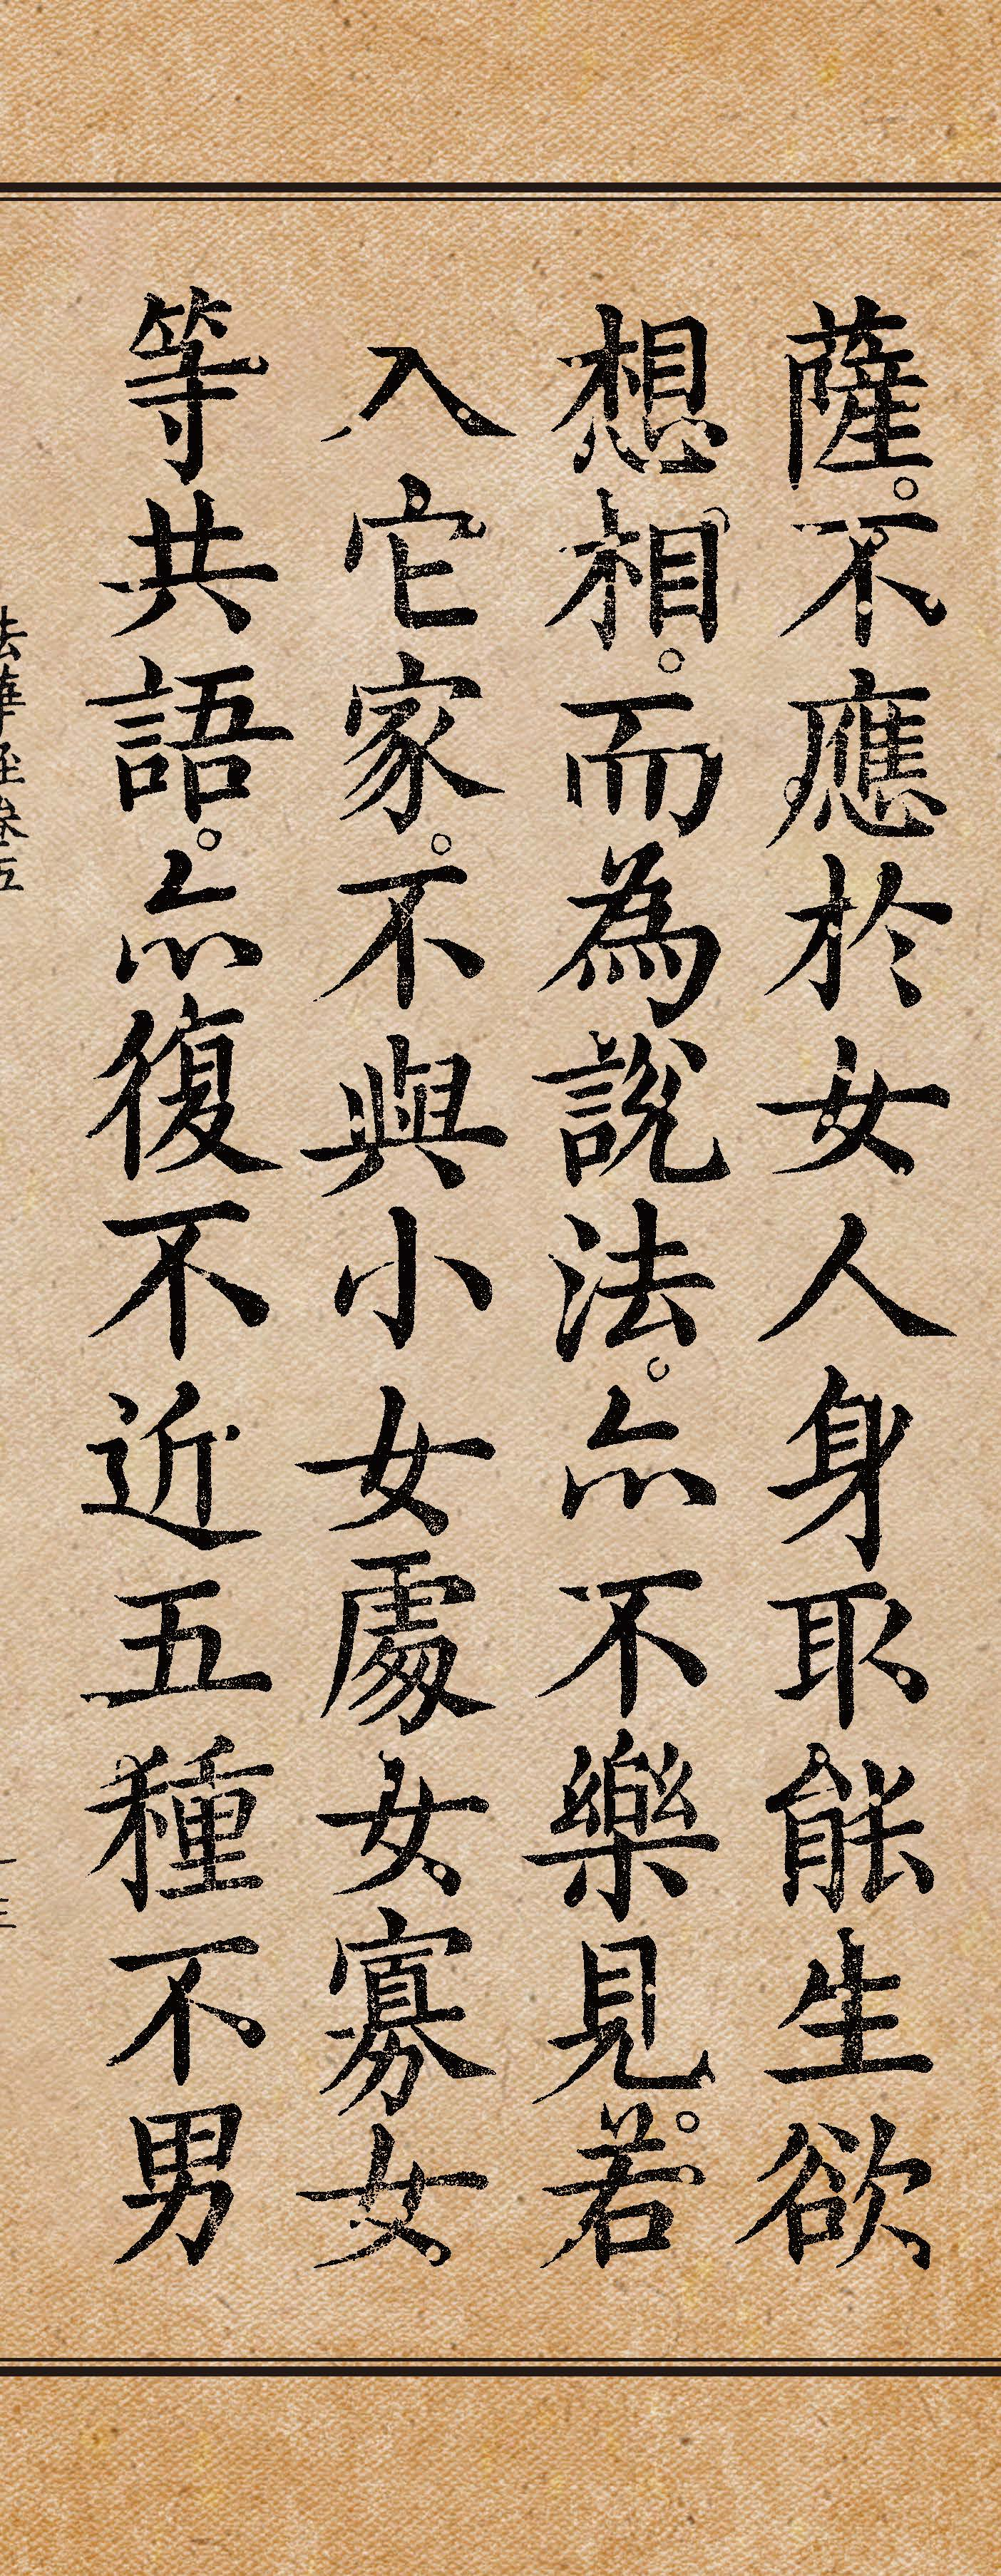 薩。不應於女人身取能生欲
想相。而為說法。亦不樂見。若
入它家。不與小女處女寡女
等共語。亦復不近五種不男
法華經卷五